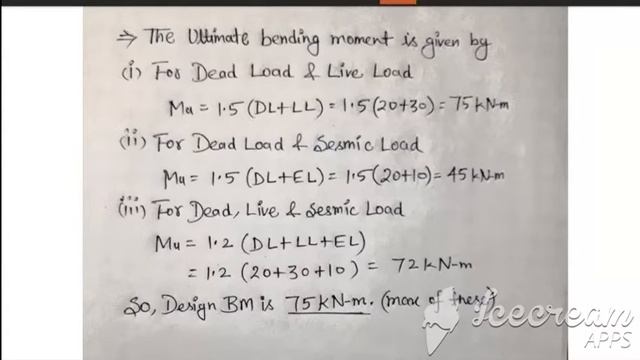 ⇒ The Ultimate bending moment is given by
(i) For Dead Load & Live Load
Mu = 1.5 (DL+LL) = 1.5(20+30) = 75 kN-m
(ii) For Dead Load & Sesmic Load
Mu = 1.5 (DL+EL) = 1.5(20+10) = 45 kN-m
(iii) For Dead, Live & Sesmic Load
Mu = 1.2 (DL+LL+EL)
= 1.2 (20+30+10) = 72 kN-m
So, Design BM is 75 kN-m. (max of these)
Icecream
APPS